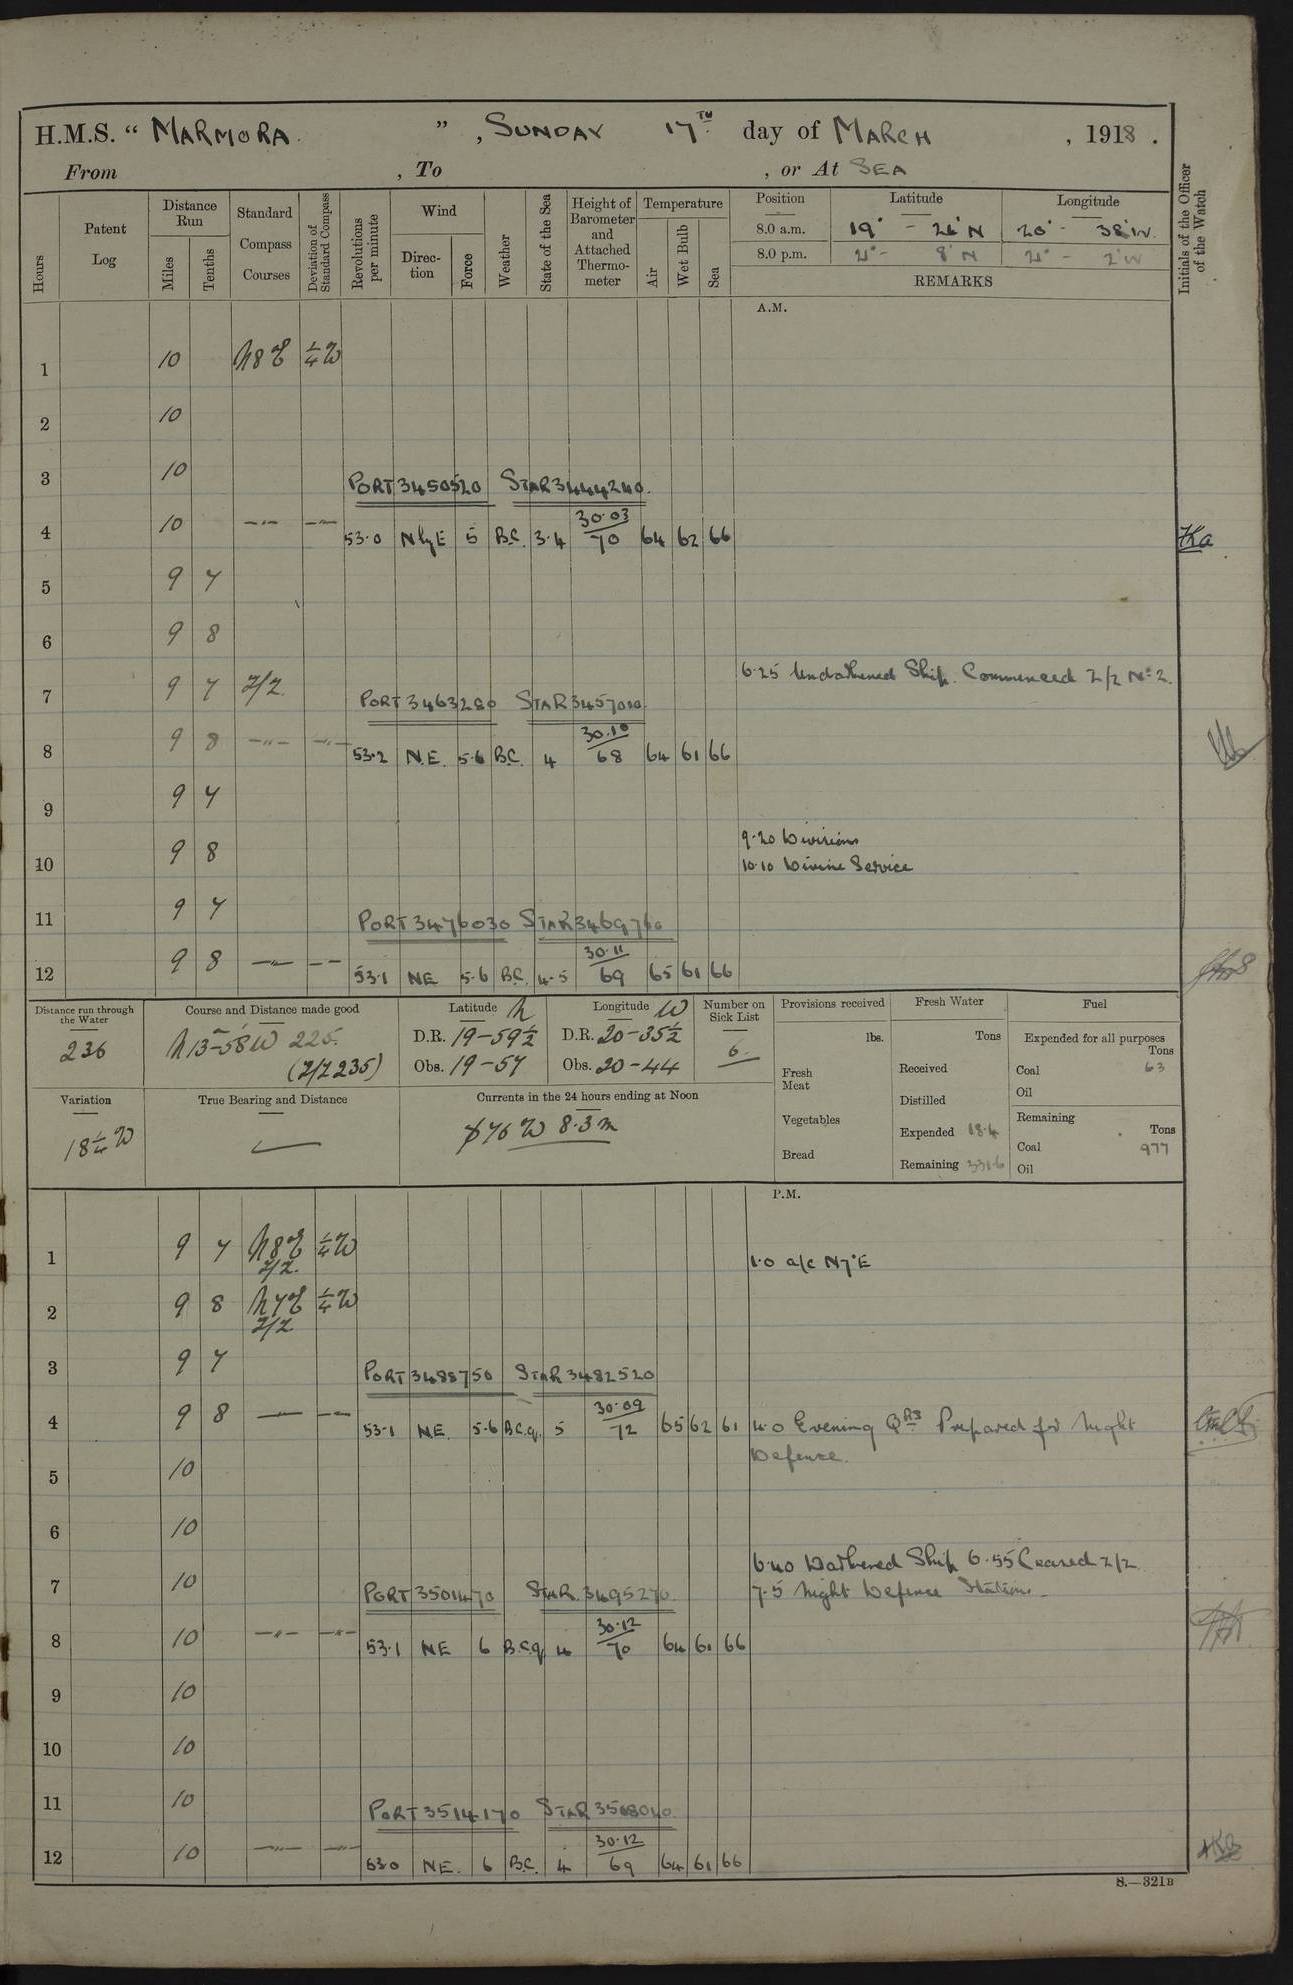 H.M.S. “ MARMORA ” , SUNDAY 17TH day of MARCH , 1918 .
From , To , or At SEA
Hours Patent Log Distance Run Miles Tenths Standard Compass Courses Deviation of Standard Compass Revolutions per minute Wind Direction Force Weather State of the Sea Height of Barometer and Attached Thermometer Temperature Air Wet Bulb Sea Position Latitude Longitude Initials of the Officer of the Watch
8.0 a.m. 19° - 26' N 20° - 38' W.
8.0 p.m. 21° - 8' N 21° - 2' W
REMARKS
A.M.
1 10 N8E ¼W
2 10
3 10
PORT 3450520 STAR 3444240.
4 10 —"— —"— 53.0 N by E 5 B.C. 3.4 30.03/70 64 62 66
5 9 7
6 9 8
6.25 Undarkened Ship. Commenced Z/Z No 2.
7 9 7 Z/Z.
PORT 3463280 STAR 3457010
8 9 8 —"— —"— 53.2 N.E. 5.6 B.C. 4 30.10/68 64 61 66
9 9 7
9.20 Divisions
10 9 8
10.10 Divine Service
11 9 7
PORT 3476030 STAR 3469760
12 9 8 —"— —"— 53.1 NE 5.6 B.C. 4-5 30.11/69 65 61 66
Distance run through the Water Course and Distance made good Latitude N Longitude W Number on Sick List Provisions received Fresh Water Fuel
236 N13-58W 225. D.R. 19-59½ D.R. 20-35½ 6. lbs. Tons Expended for all purposes Tons
(Z/Z 235) Obs. 19-57 Obs. 20-44 Fresh Meat Received Coal 63
Distilled Oil
Variation True Bearing and Distance Currents in the 24 hours ending at Noon Vegetables Expended 18.4 Remaining Tons
18¼ W — S 76 W 8.3 m Bread Remaining 331.6 Coal 977
Oil
P.M.
1 9 7 N8E Z/Z. ¼W 1.0 a/c N7°E
2 9 8 N7E Z/Z ¼W
3 9 7
PORT 3488750 STAR 3482520
4 9 8 —"— —"— 53.1 N.E. 5.6 B.C.q. 5 30.09/72 65 62 61 4.0 Evening QRS Prepared for Night
Defence.
5 10
6 10
6.40 Darkened Ship 6.55 Ceased Z/Z
7 10 7.5 Night Defence Stations
PORT 3501470 STAR. 3495270
8 10 —"— —"— 53.1 NE 6 B.C.q 4 30.12/70 64 61 66
9 10
10 10
11 10
PORT 3514170 STAR 3508040
12 10 —"— —"— 53.0 NE. 6 B.C. 4 30.12/69 64 61 66
S.—321B